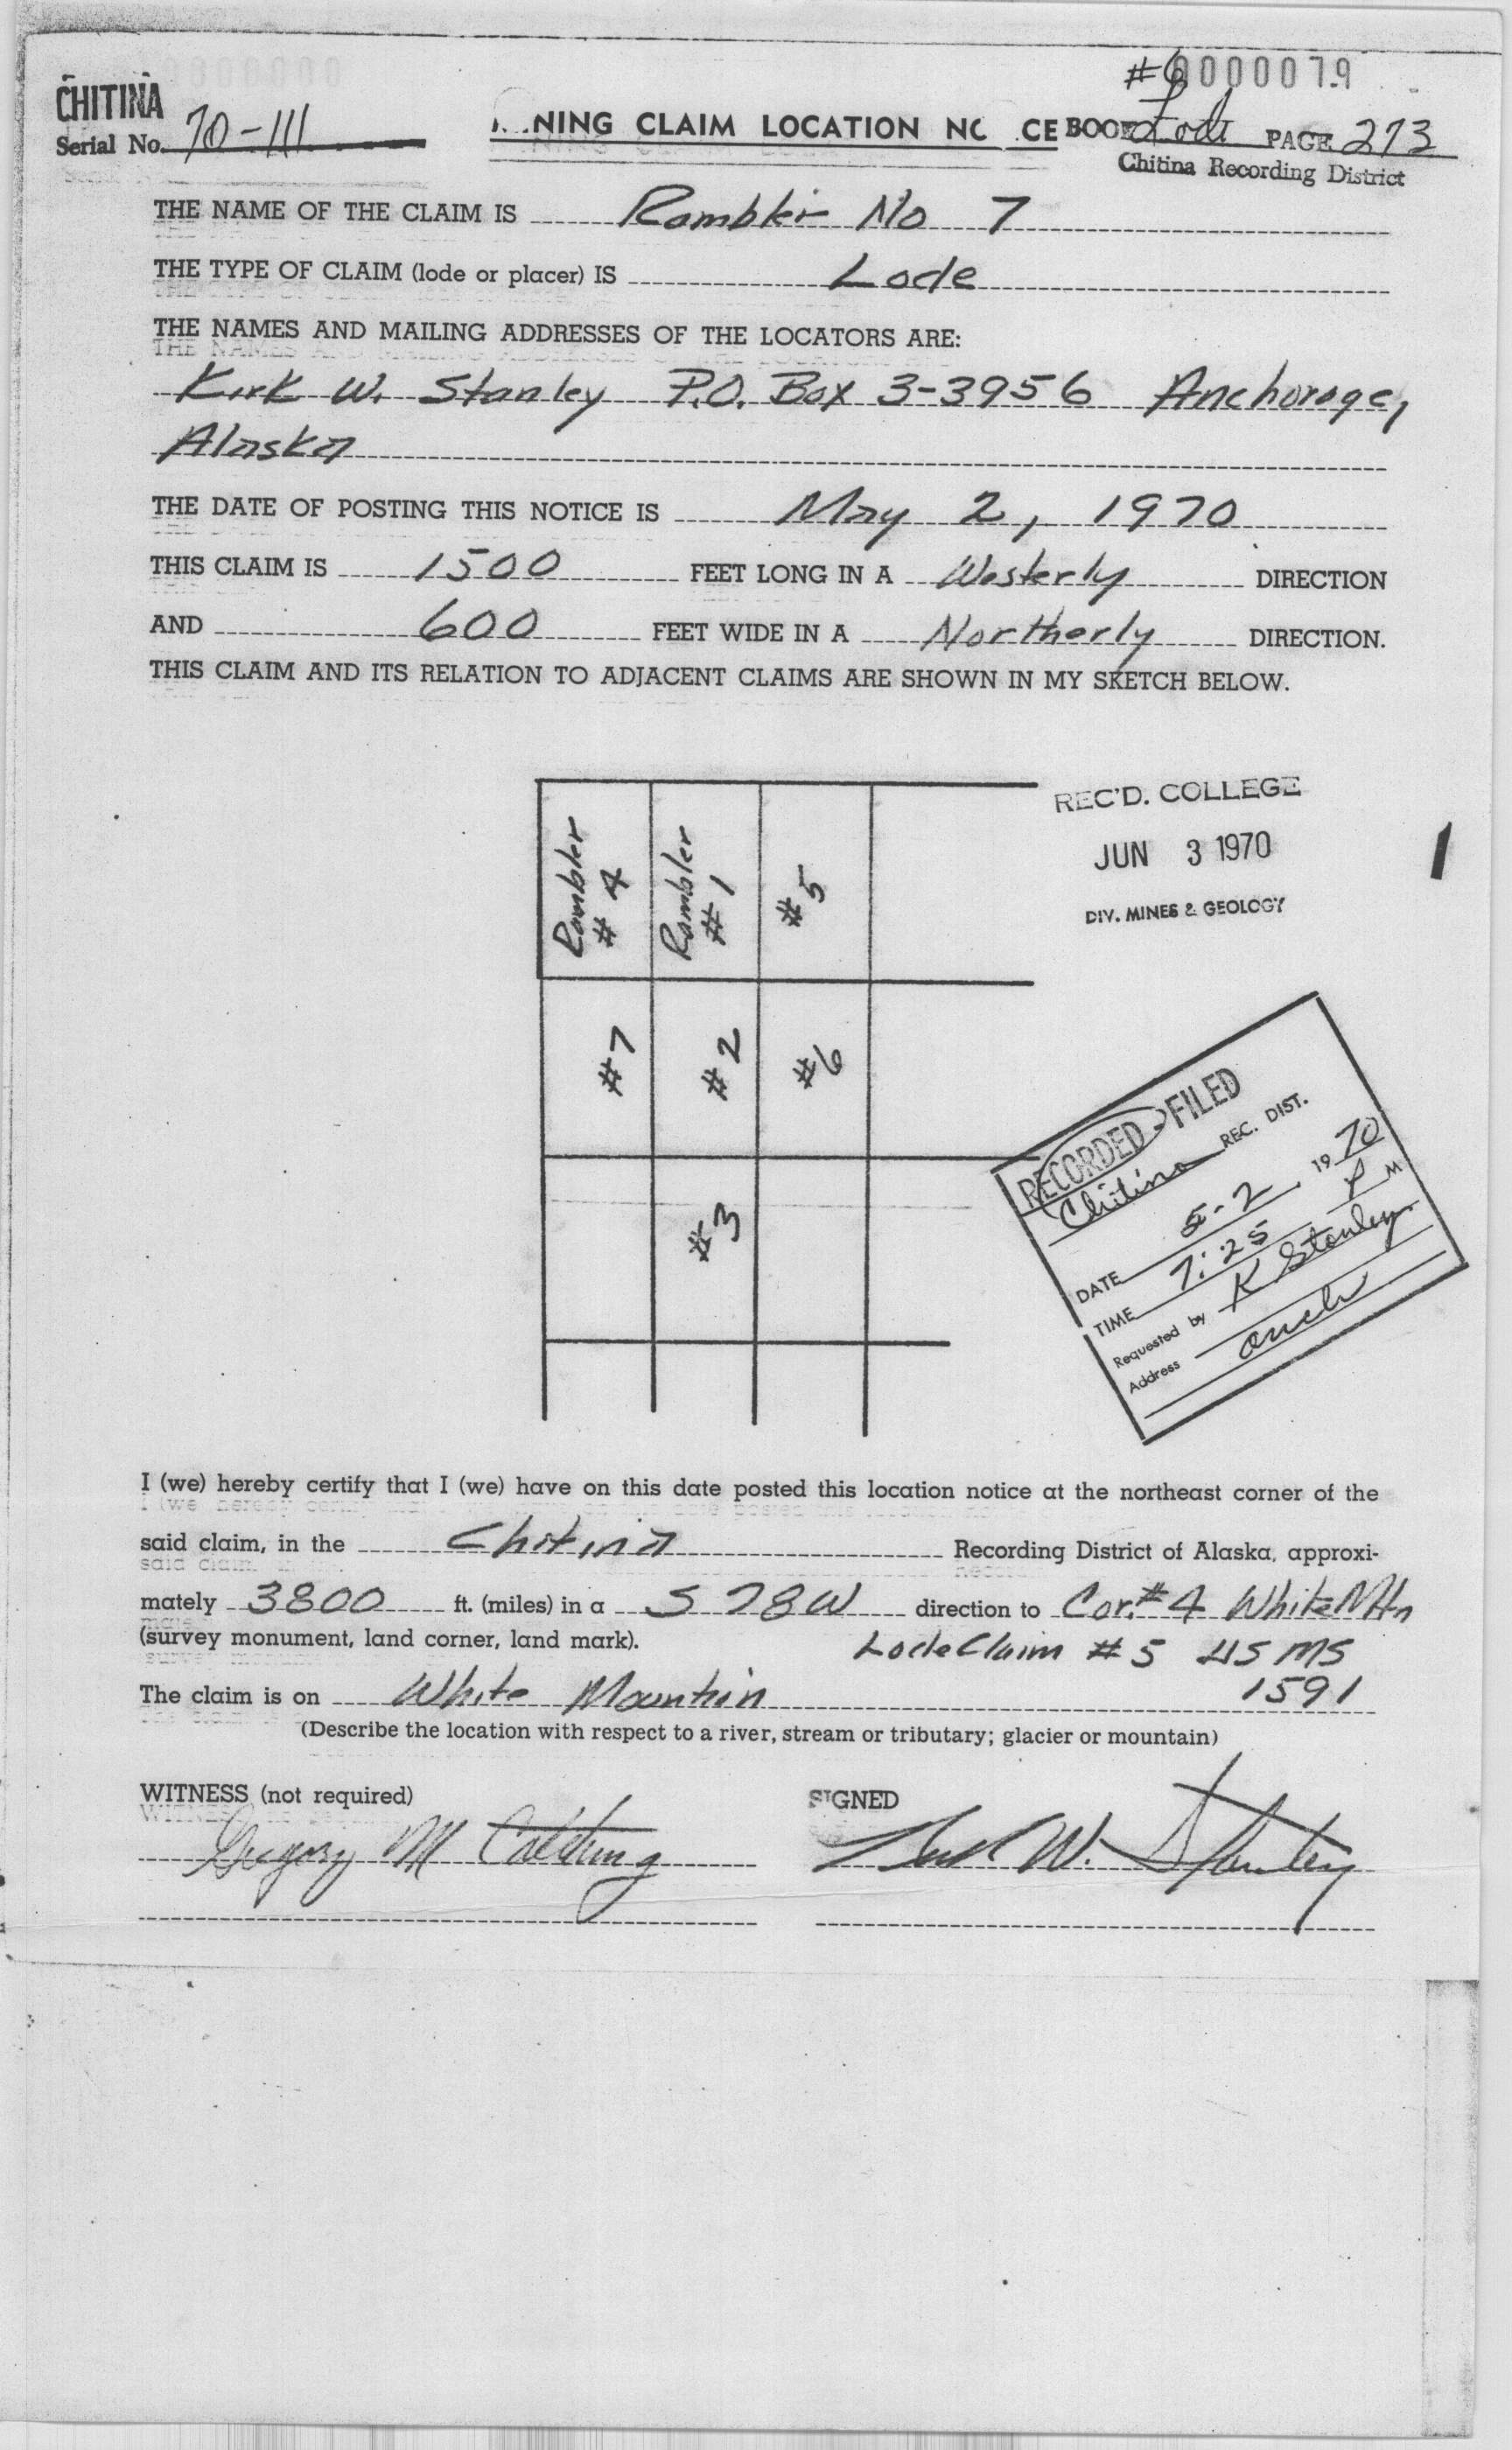 #6 0000079
CHITINA
Serial No. 70-111
NING CLAIM LOCATION NO CE BOOK Lode PAGE 273
Chitina Recording District
THE NAME OF THE CLAIM IS Rambler No 7
THE TYPE OF CLAIM (lode or placer) IS Lode
THE NAMES AND MAILING ADDRESSES OF THE LOCATORS ARE:
Kirk W. Stanley P.O. Box 3-3956 Anchorage,
Alaska
THE DATE OF POSTING THIS NOTICE IS May 2, 1970
THIS CLAIM IS 1500 FEET LONG IN A Westerly DIRECTION
AND 600 FEET WIDE IN A Northerly DIRECTION.
THIS CLAIM AND ITS RELATION TO ADJACENT CLAIMS ARE SHOWN IN MY SKETCH BELOW.
Rambler
# 4
Rambler
# 1
# 5
REC'D. COLLEGE
JUN 3 1970
DIV. MINES & GEOLOGY
1
#7
# 2
#6
#3
RECORDED - FILED
Chitina REC. DIST.
DATE 5-2, 1970
TIME 7:25 P M
Requested by K Stanley
Address anch
I (we) hereby certify that I (we) have on this date posted this location notice at the northeast corner of the
said claim, in the Chitina Recording District of Alaska, approxi-
mately 3800 ft. (miles) in a S 78 W direction to Cor. # 4 White Mtn
(survey monument, land corner, land mark). Lode Claim # 5 US MS
The claim is on White Mountain 1591
(Describe the location with respect to a river, stream or tributary; glacier or mountain)
WITNESS (not required) SIGNED
Gregory M Kirk W. Stanley